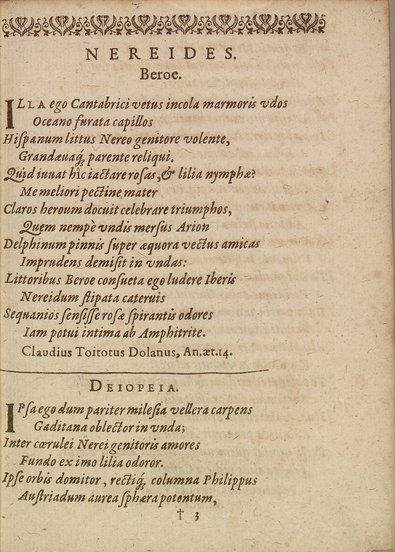 NEREIDES.
Beroe.
ILLA ego Cantabrici vetus incola marmoris vdos
Oceano furata capillos
Hiſpanum littus Nereo genitore volente,
Grandæuaq́; parente reliqui.
Quid iuuat hîc iactare roſas, & lilia nymphæ?
Me meliori pectine mater
Claros heroum docuit celebrare triumphos,
Quem nempè vndis merſus Arion
Delphinum pinnis ſuper æquora vectus amicas
Imprudens demiſit in vndas:
Littoribus Beroe conſueta ego ludere Iberis
Nereidum ſtipata cateruis
Sequanios ſenſiſſe roſæ ſpirantis odores
Iam potui intima ab Amphitrite.
Claudius Toitotus Dolanus, An.æt.14.
DEIOPEIA.
IPſa ego dum pariter mileſia vellera carpens
Gaditana oblector in vnda;
Inter cœrulei Nerei genitoris amores
Fundo ex imo lilia odoror.
Ipſe orbis domitor, rectiq́; columna Philippus
Auſtriadum aurea ſphæra potentum,
† 3